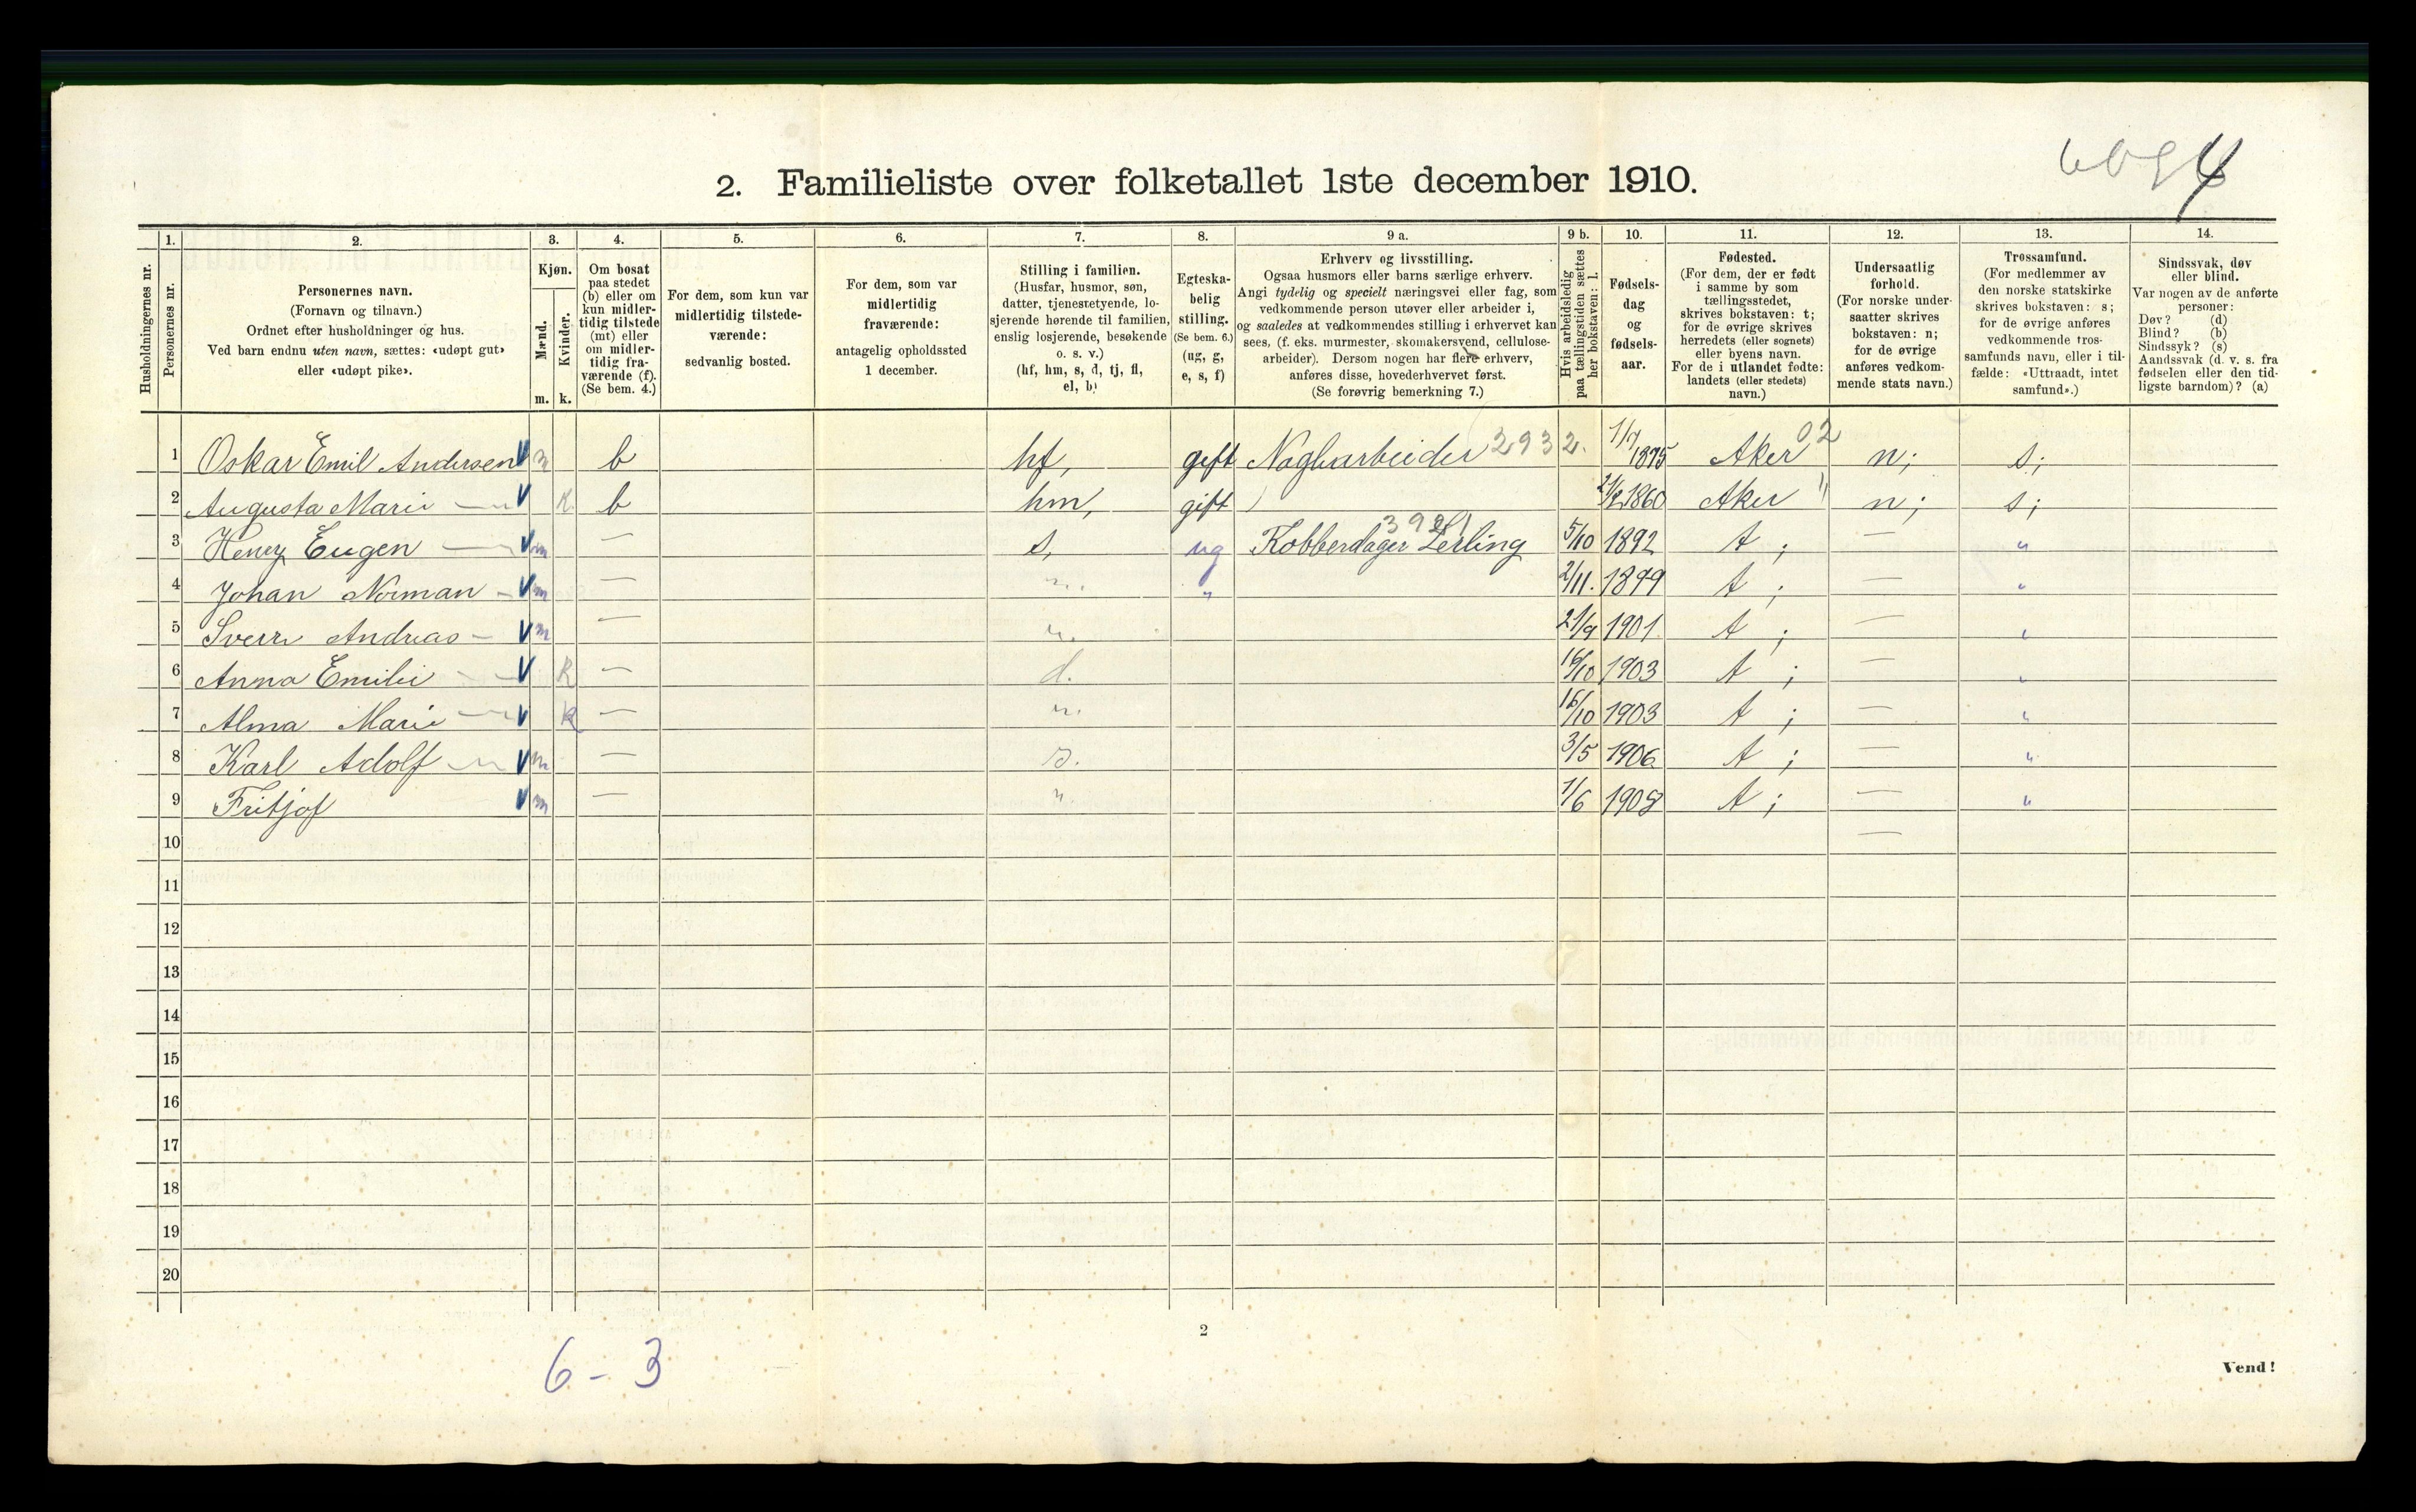 2. Familieliste over folketallet 1ste december 1910.
4
Husholdningernes nr.
1. Personernes nr.
2. Personernes navn. (Fornavn og tilnavn.) Ordnet efter husholdninger og hus. Ved barn endnu uten navn, sættes: «udøpt gut» eller «udøpt pike».
3. Kjøn. Mænd. m. Kvinder. k.
4. Om bosat paa stedet (b) eller om kun midlertidig tilstede (mt) eller om midlertidig fraværende (f). (Se bem. 4.)
5. For dem, som kun var midlertidig tilstedeværende: sedvanlig bosted.
6. For dem, som var midlertidig fraværende: antagelig opholdssted 1 december.
7. Stilling i familien. (Husfar, husmor, søn, datter, tjenestetyende, losjerende hørende til familien, enslig losjerende, besøkende o. s. v.) (hf, hm, s, d, tj, fl, el, b)
8. Egteskabelig stilling. (Se bem. 6.) (ug, g, e, s, f)
9 a. Erhverv og livsstilling. Ogsaa husmors eller barns særlige erhverv. Angi tydelig og specielt næringsvei eller fag, som vedkommende person utøver eller arbeider i, og saaledes at vedkommendes stilling i erhvervet kan sees, (f. eks. murmester, skomakersvend, cellulosearbeider). Dersom nogen har flere erhverv, anføres disse, hovederhvervet først. (Se forøvrig bemerkning 7.)
9 b. Hvis arbeidsledig paa tællingstiden sættes her bokstaven: l.
10. Fødselsdag og fødselsaar.
11. Fødested. (For dem, der er født i samme by som tællingsstedet, skrives bokstaven: t; for de øvrige skrives herredets (eller sognets) eller byens navn. For de i utlandet fødte: landets (eller stedets) navn.)
12. Undersaatlig forhold. (For norske undersaatter skrives bokstaven: n; for de øvrige anføres vedkommende stats navn.)
13. Trossamfund. (For medlemmer av den norske statskirke skrives bokstaven: s; for de øvrige anføres vedkommende trossamfunds navn, eller i tilfælde: «Uttraadt, intet samfund».)
14. Sindssvak, døv eller blind. Var nogen av de anførte personer: Døv? (d) Blind? (b) Sindssyk? (s) Aandssvak (d. v. s. fra fødselen eller den tidligste barndom)? (a)
1 Oskar Emil Andersen m b hf, gift Naglearbeider 2932. 1/7 1875 Aker 02 n; s;
2 Augusta Marie — k b hm, gift 1860 Aker " n; s;
3 Henry Eugen — m — s, ug Kobberslager Lerling 5/10 1892 t ; — "
4 Johan Norman — m — " " 2/11. 1899 t ; — "
5 Sverre Andreas — m — " 21/9 1901 t ; — "
6 Anna Emilie — k — d. 16/10 1903 t ; — "
7 Alma Marie — k — " 16/10 1903 t ; — "
8 Karl Adolf — m — s. 3/5 1906 t ; — "
9 Fritjof m — " 1/6 1908 t ; — "
10 —
11
12
13
14
15
16
17
18
19
20
2
6 - 3
Vend!